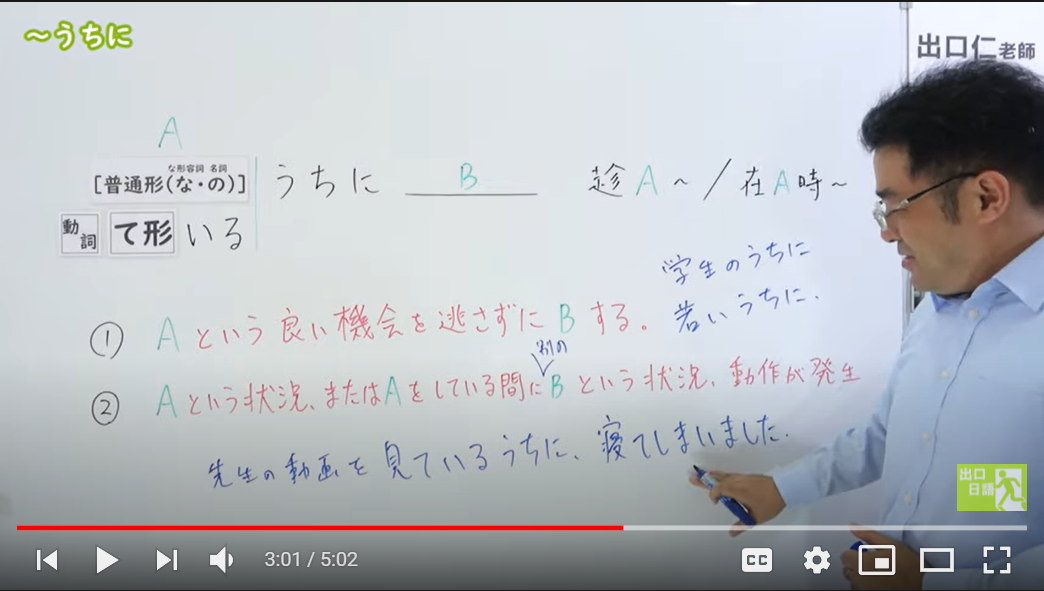 ～うちに
出口仁老師
A
な形容詞 名詞
[普通形(な・の)] うちに B 趁A～／在A時～
動詞 て形 いる
学生のうちに
若いうちに.
① Aという良い機会を逃さずにBする。
別の
② Aという状況、またはAをしている間にBという状況、動作が発生
先生の動画を見ているうちに、寝てしまいました.
出口
日語
3:01 / 5:02
CC